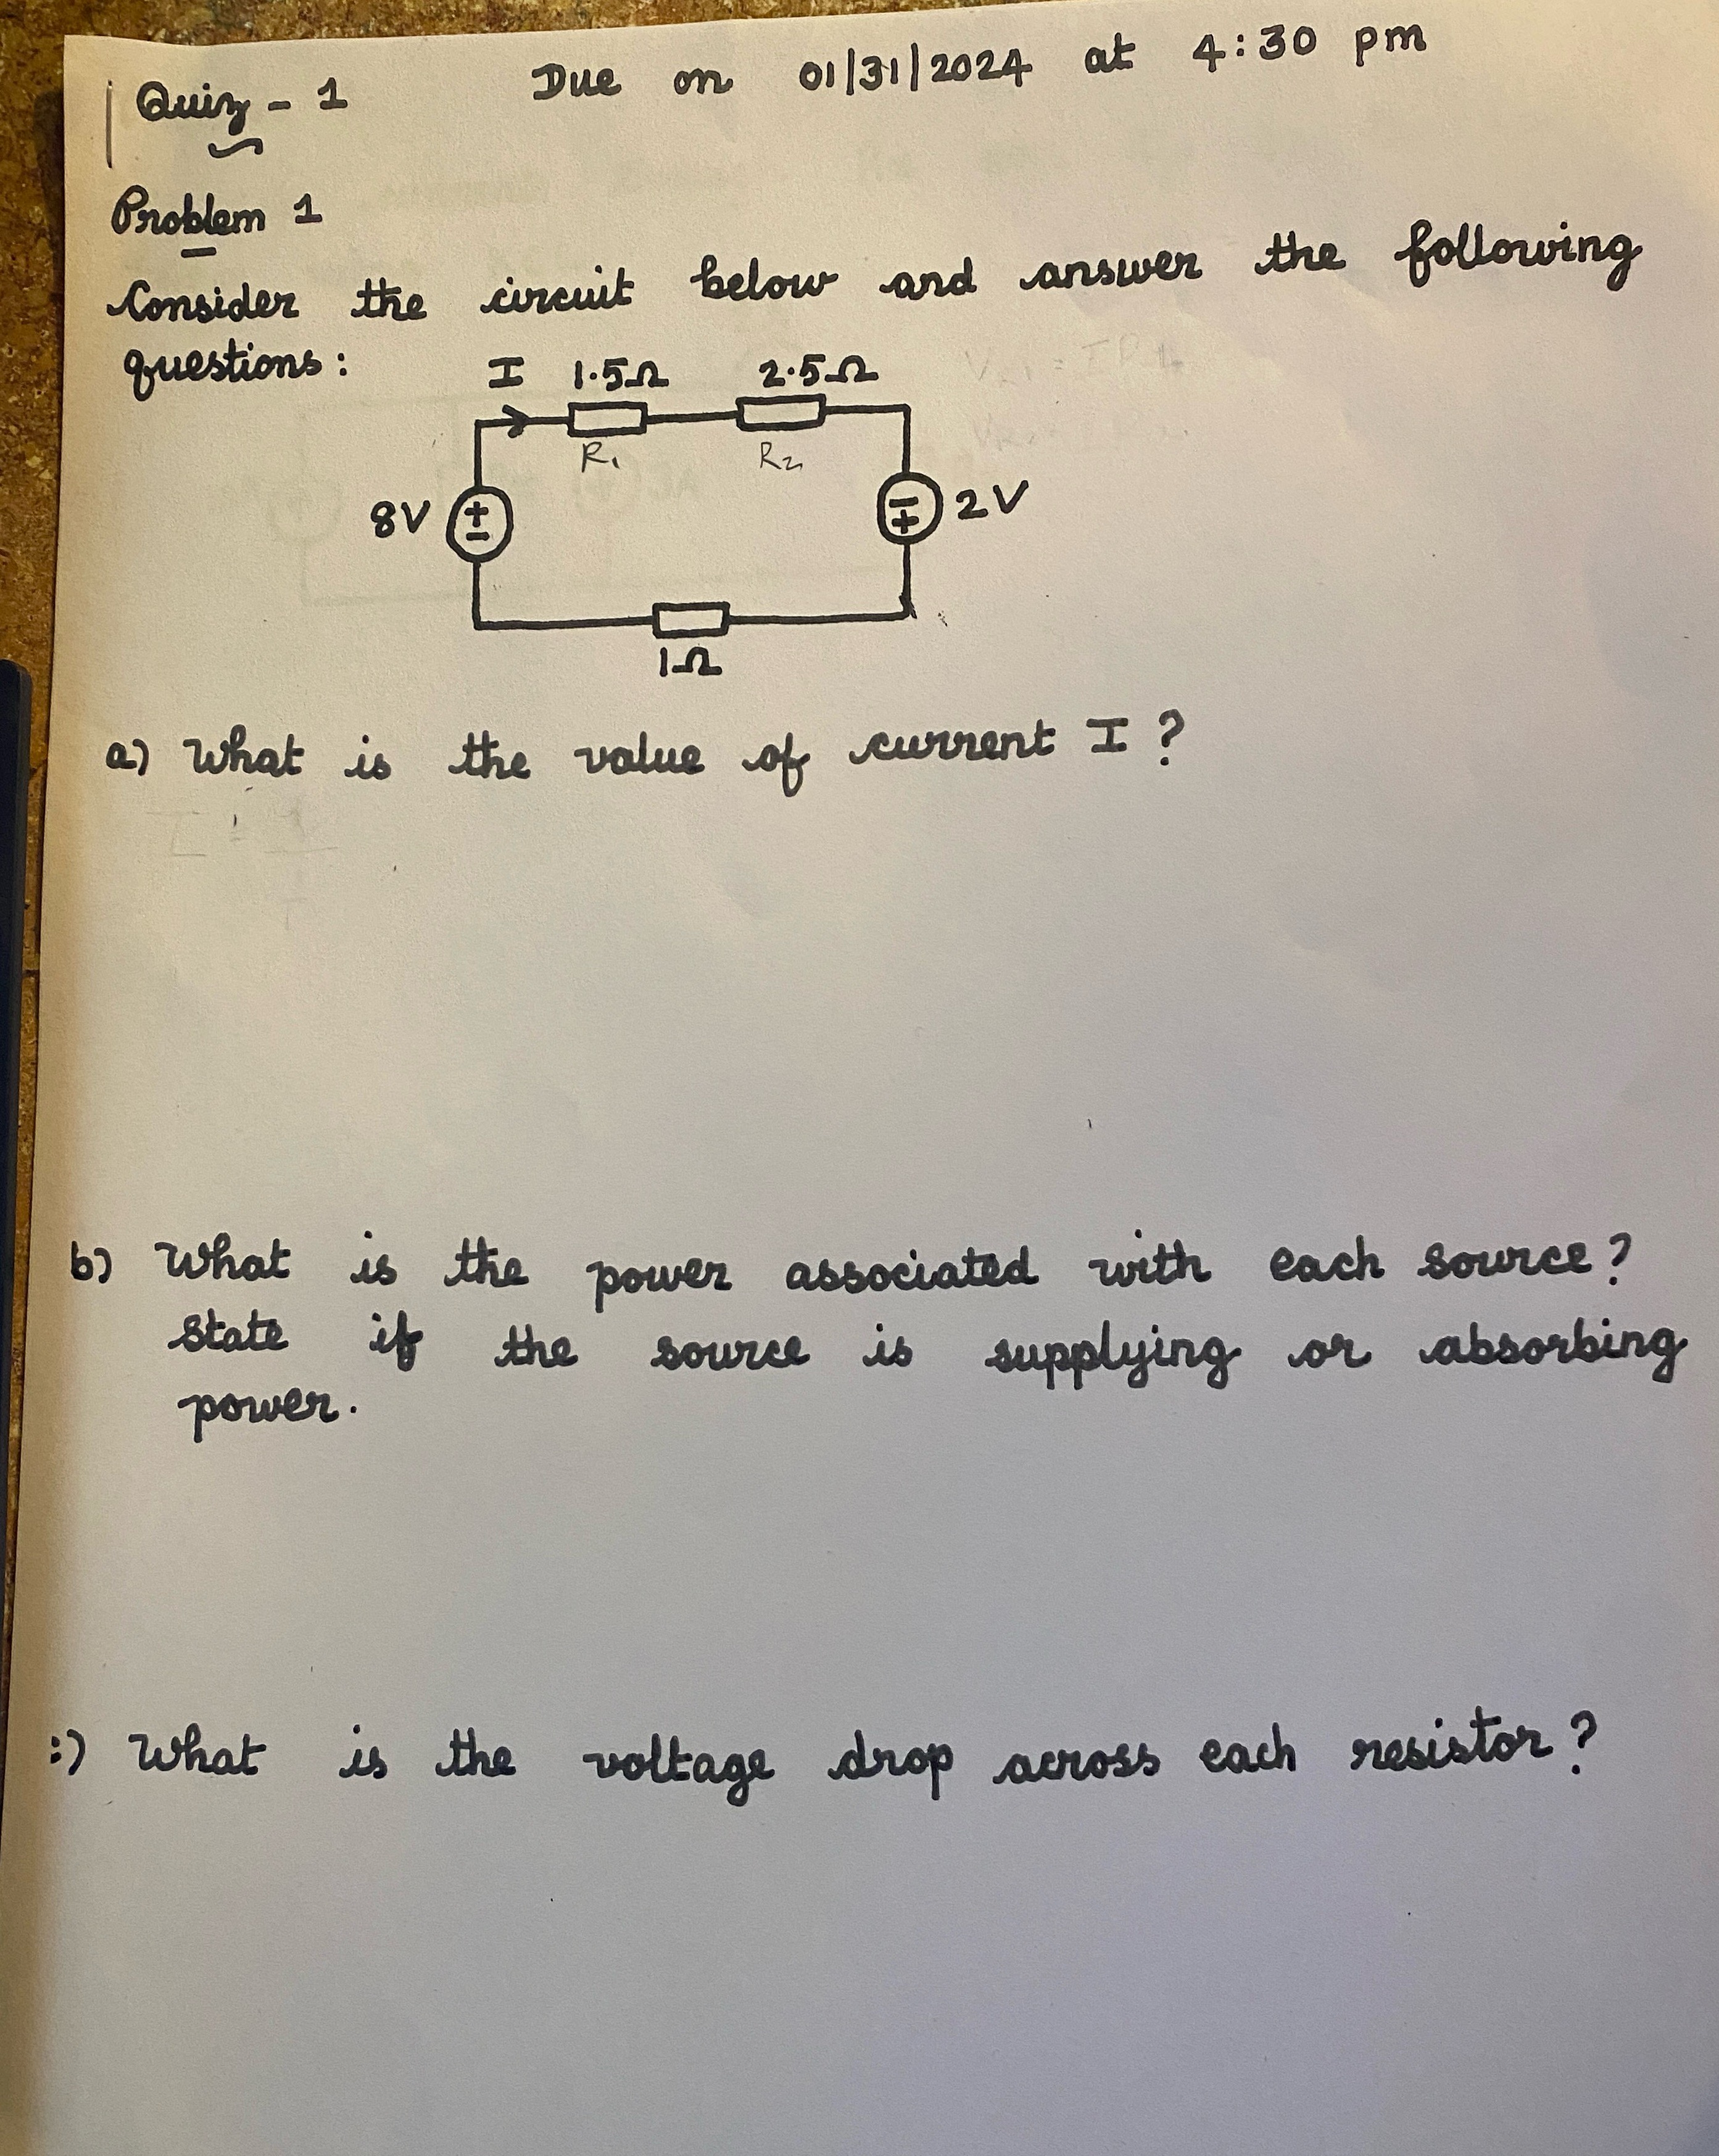 Quiz - 1 Due on 01/31/2024 at 4:30 pm
Problem 1
Consider the circuit below and answer the following
questions:
I 1.5Ω 2.5Ω
R₁ R₂
8V + - - + 2V
1Ω
a) What is the value of current I ?
b) What is the power associated with each source?
State if the source is supplying or absorbing
power.
:) What is the voltage drop across each resistor?